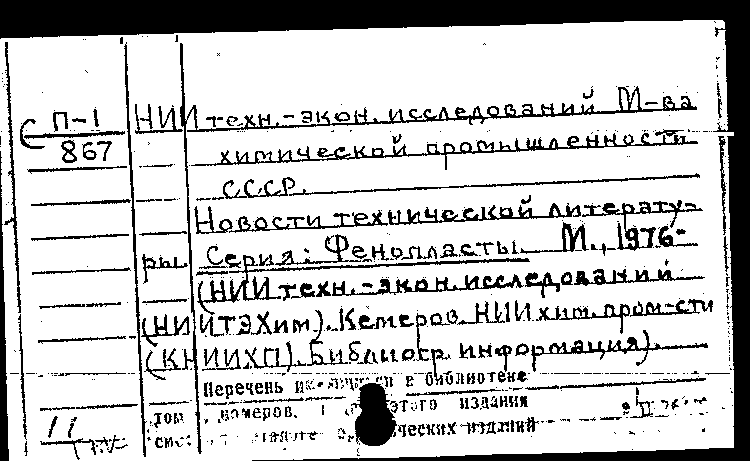 С П-1
867
НИИ техн.-экон. исследований М-ва
химической промышленности
СССР.
Новости технической литерату-
ры. Серия: Фенопласты. М., 1976-
(НИИ техн.-экон. исследований
(НИИТЭХим). Кемеров. НИИ хим. пром-сти
(КНИИХП). Библиогр. информация).
Перечень в библиотеке
томов, номеров, этого издания
11